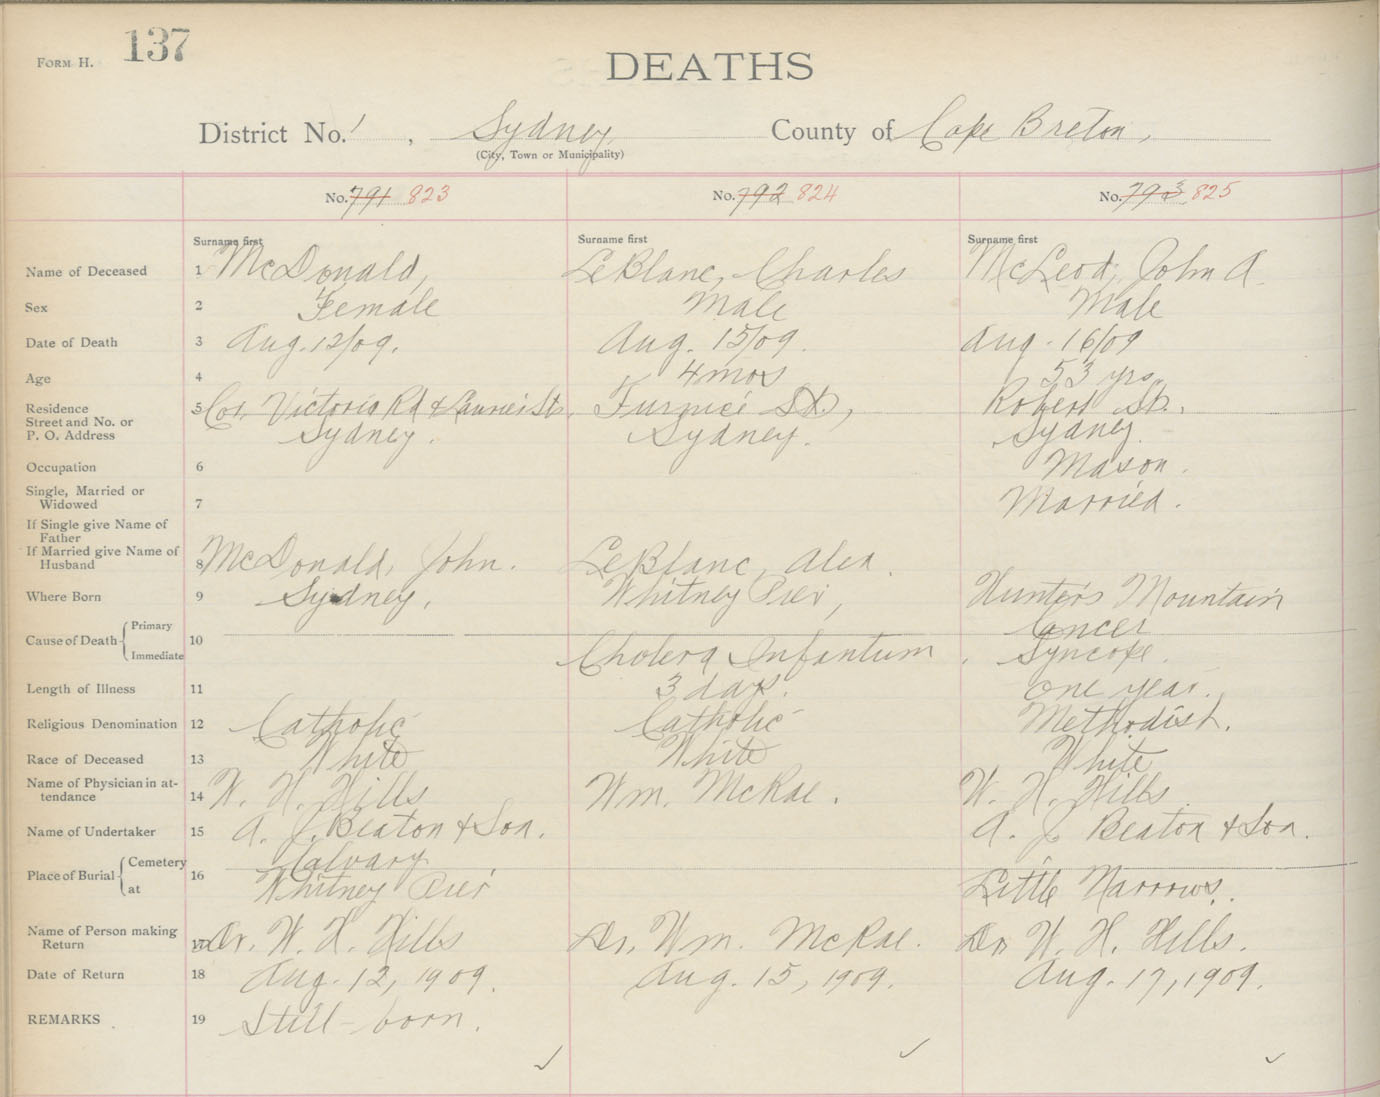 FORM H. 137
DEATHS
District No. 1, Sydney County of Cape Breton,
(City, Town or Municipality)
No. 791 823 No. 792 824 No. 793 825
Surname first Surname first Surname first
Name of Deceased 1 McDonald, LeBlanc, Charles McLeod, John A.
Sex 2 Female Male Male
Date of Death 3 Aug. 12/09. Aug. 15/09. Aug. 16/09
Age 4 4 mos 53 yrs.
Residence 5 Cor. Victoria Rd & Laurier St. Furnice St., Robert St.
Street and No. or
P. O. Address Sydney. Sydney. Sydney.
Occupation 6 Mason.
Single, Married or
Widowed 7 Married.
If Single give Name of
Father
If Married give Name of
Husband 8 McDonald, John. LeBlanc, Alex.
Where Born 9 Sydney. Whitney Pier, Hunter's Mountain
Cause of Death Primary 10 Cancer
Immediate Cholera Infantum. Syncope.
Length of Illness 11 3 days. one year.
Religious Denomination 12 Catholic Catholic Methodist.
Race of Deceased 13 White White White
Name of Physician in at-
tendance 14 W. H. Hills Wm. McRae. W. H. Hills
Name of Undertaker 15 A. J. Beaton & Son. A. J. Beaton & Son.
Place of Burial Cemetery 16 Calvary
at Whitney Pier Little Narrows.
Name of Person making
Return 17 Dr. W. H. Hills Dr. Wm. McRae. Dr W. H. Hills.
Date of Return 18 Aug. 12, 1909. Aug. 15, 1909. Aug. 17, 1909.
REMARKS 19 Still-born.